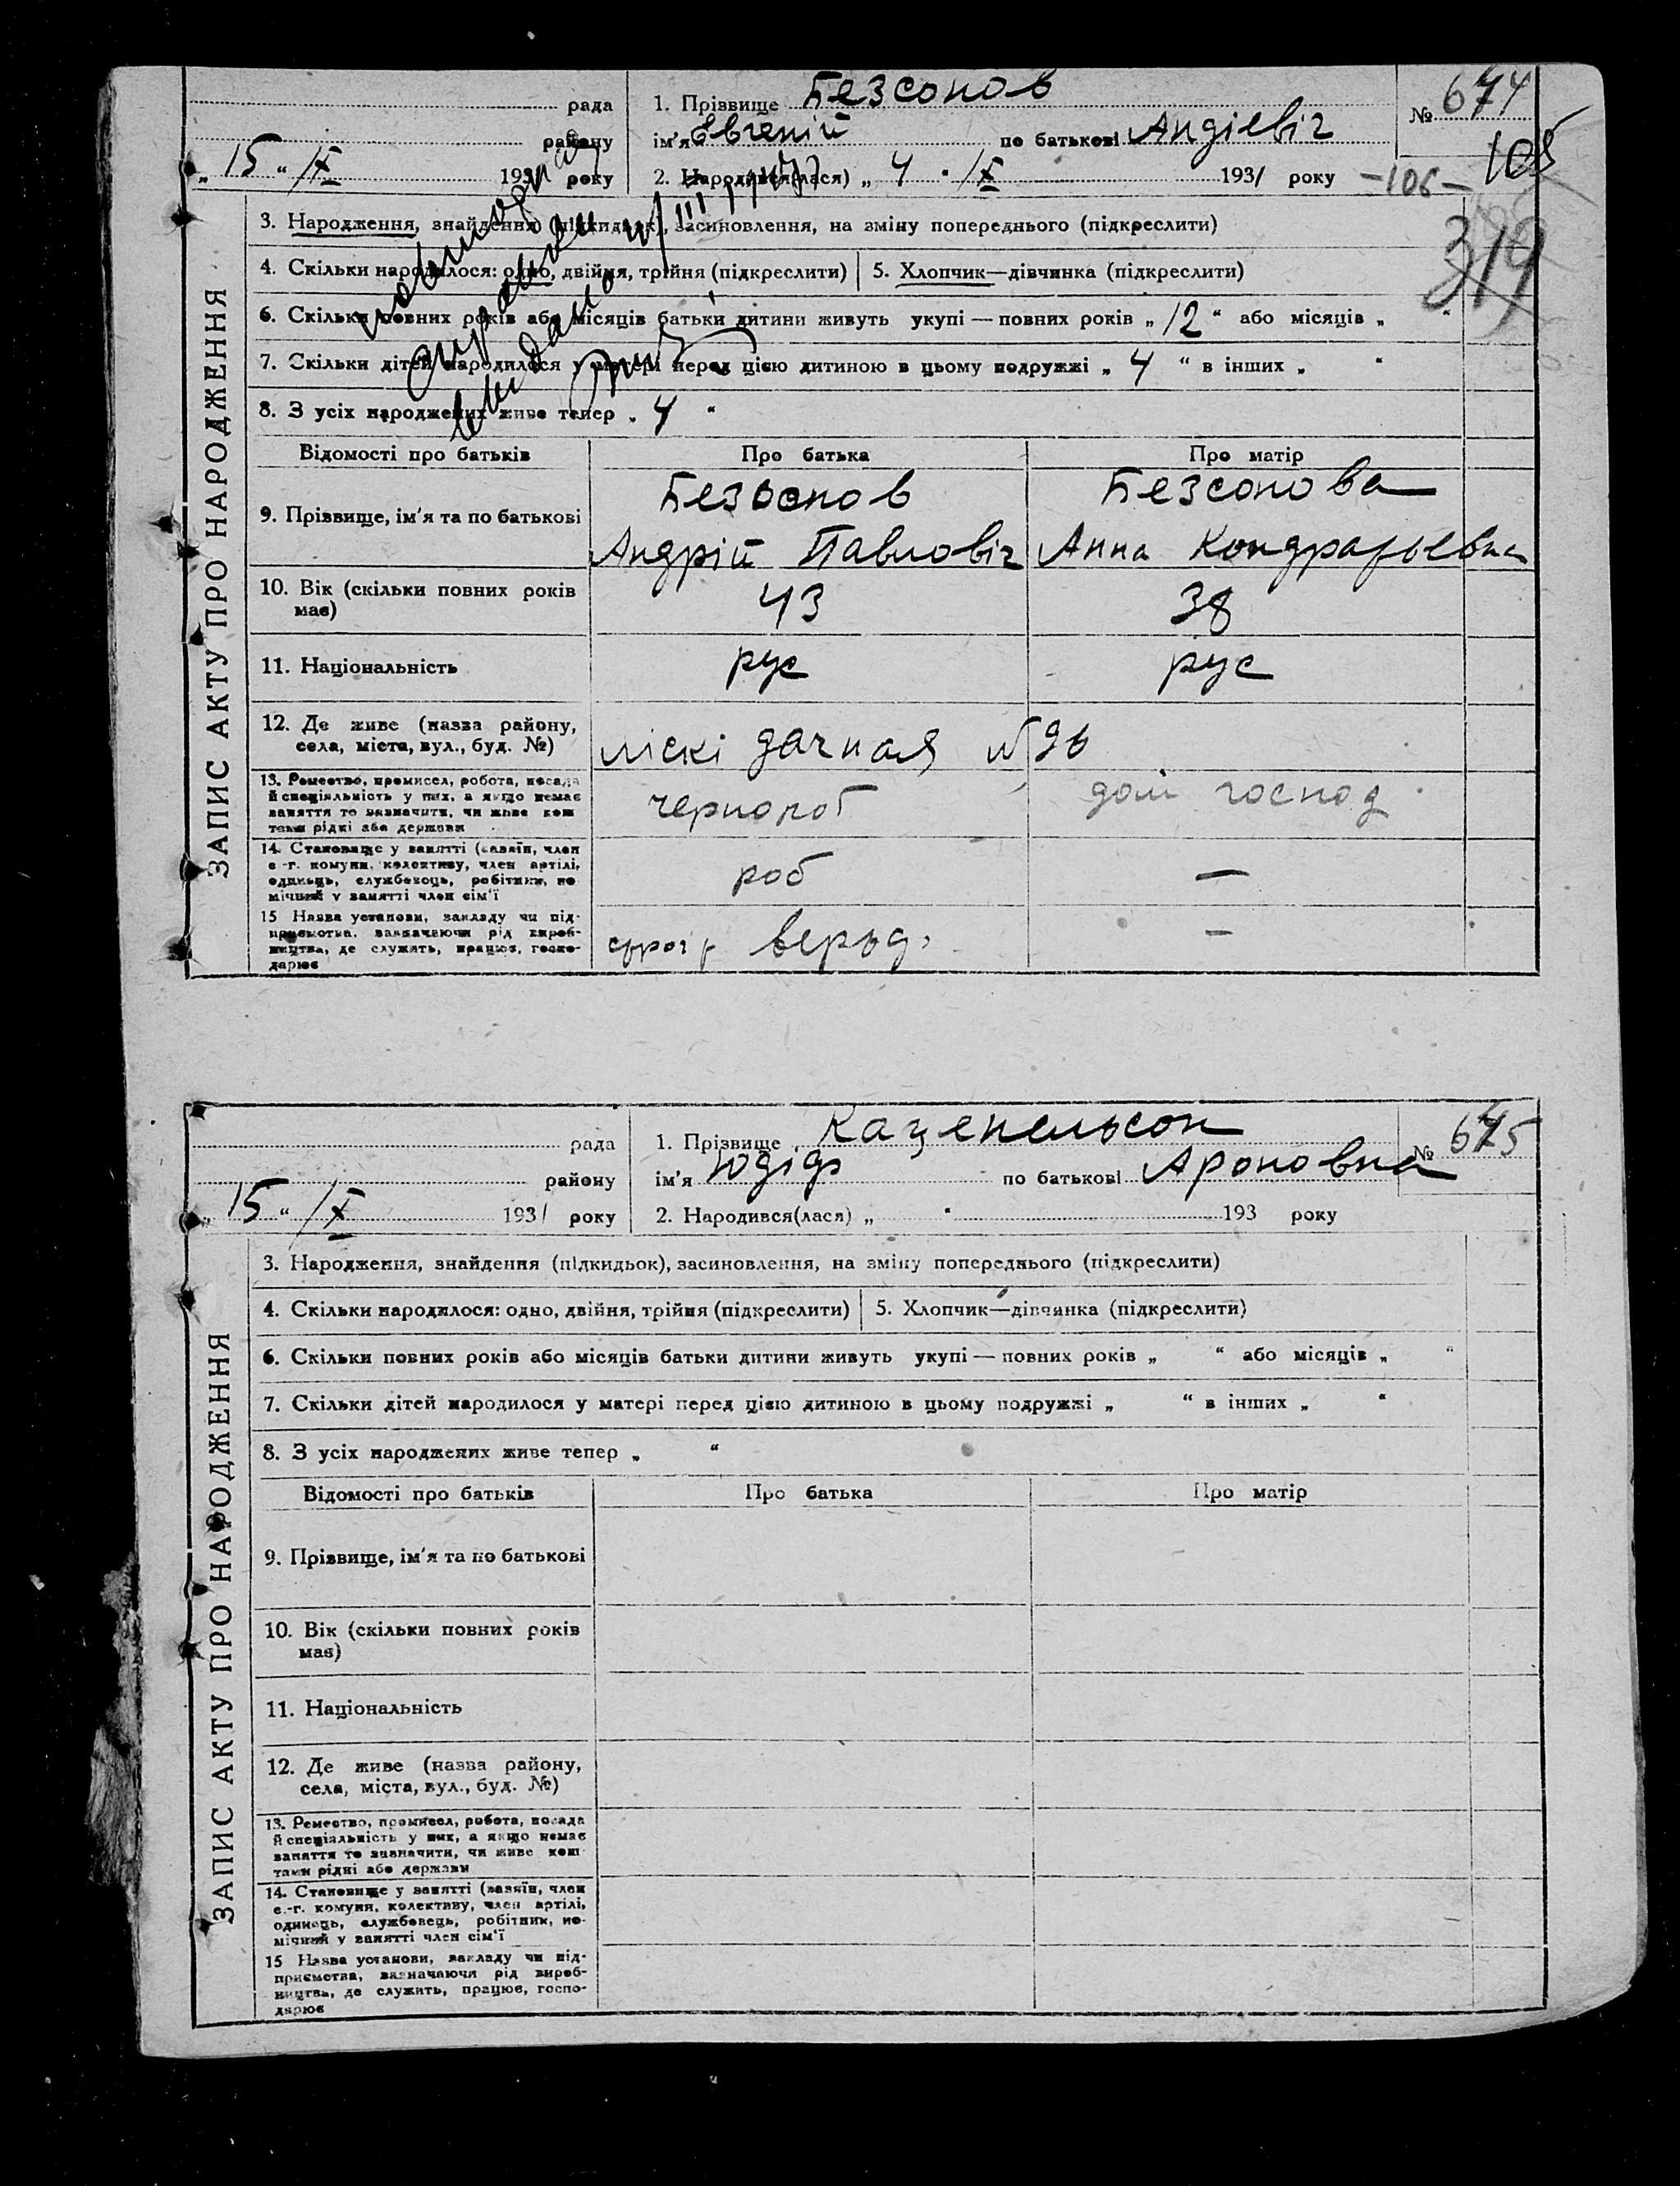 рада
району
„ 15 “ IX 1931 року
1. Прізвище Безсонов
ім'я Евгеній по батькові Андіевіч
2. Народився(лася) „ 4 “ IX 1931 року
№ 674
105
—106—
319
ЗАПИС АКТУ ПРО НАРОДЖЕННЯ
3. Народження, знайдення (підкидьок), засиновлення, на зміну попереднього (підкреслити)
4. Скільки народилося: одно, двійня, трійня (підкреслити) 5. Хлопчик—дівчинка (підкреслити)
6. Скільки повних років або місяців батьки дитини живуть укупі — повних років „ 12 “ або місяців „ “
7. Скільки дітей народилося у матері перед цією дитиною в цьому подружжі „ 4 “ в інших „ “
8. З усіх народжених живе тепер „ 4 “
Відомості про батьків Про батька Про матір
9. Прізвище, ім'я та по батькові
Безсонов
Андрій Павловіч
Безсонова
Анна Кондратьевна
10. Вік (скільки повних років
має)
43 38
11. Національність рус рус
12. Де живе (назва району,
села, міста, вул., буд. №)
піскі дачная № 26
13. Ремество, промисел, робота, посада
й спеціяльність у них, а якщо немає
заняття то зазначити, чи живе кош
тами рідні або держави
чернороб дом господ.
14. Становище у занятті (хазяїн, член
с.-г. комуни, колективу, член артілі,
одинець, службовець, робітник, по-
мічний у занятті член сім'ї
роб —
15 Назва установи, закладу чи під-
приємства, зазначаючи рід вироб-
ництва, де служить, працює, госпо-
дарює
—
рада
району
„ 15 “ IX 1931 року
1. Прізвище Каценельсон
ім'я Юдідь по батькові Ароновна
2. Народився(лася) „ “ 193 року
№ 675
ЗАПИС АКТУ ПРО НАРОДЖЕННЯ
3. Народження, знайдення (підкидьок), засиновлення, на зміну попереднього (підкреслити)
4. Скільки народилося: одно, двійня, трійня (підкреслити) 5. Хлопчик—дівчинка (підкреслити)
6. Скільки повних років або місяців батьки дитини живуть укупі — повних років „ “ або місяців „ “
7. Скільки дітей народилося у матері перед цією дитиною в цьому подружжі „ “ в інших „ “
8. З усіх народжених живе тепер „ “
Відомості про батьків Про батька Про матір
9. Прізвище, ім'я та по батькові
10. Вік (скільки повних років
має)
11. Національність
12. Де живе (назва району,
села, міста, вул., буд. №)
13. Ремество, промисел, робота, посада
й спеціяльність у них, а якщо немає
заняття то зазначити, чи живе кош
тами рідні або держави
14. Становище у занятті (хазяїн, член
с.-г. комуни, колективу, член артілі,
одинець, службовець, робітник, по-
мічний у занятті член сім'ї
15 Назва установи, закладу чи під-
приємства, зазначаючи рід вироб-
ництва, де служить, працює, госпо-
дарює